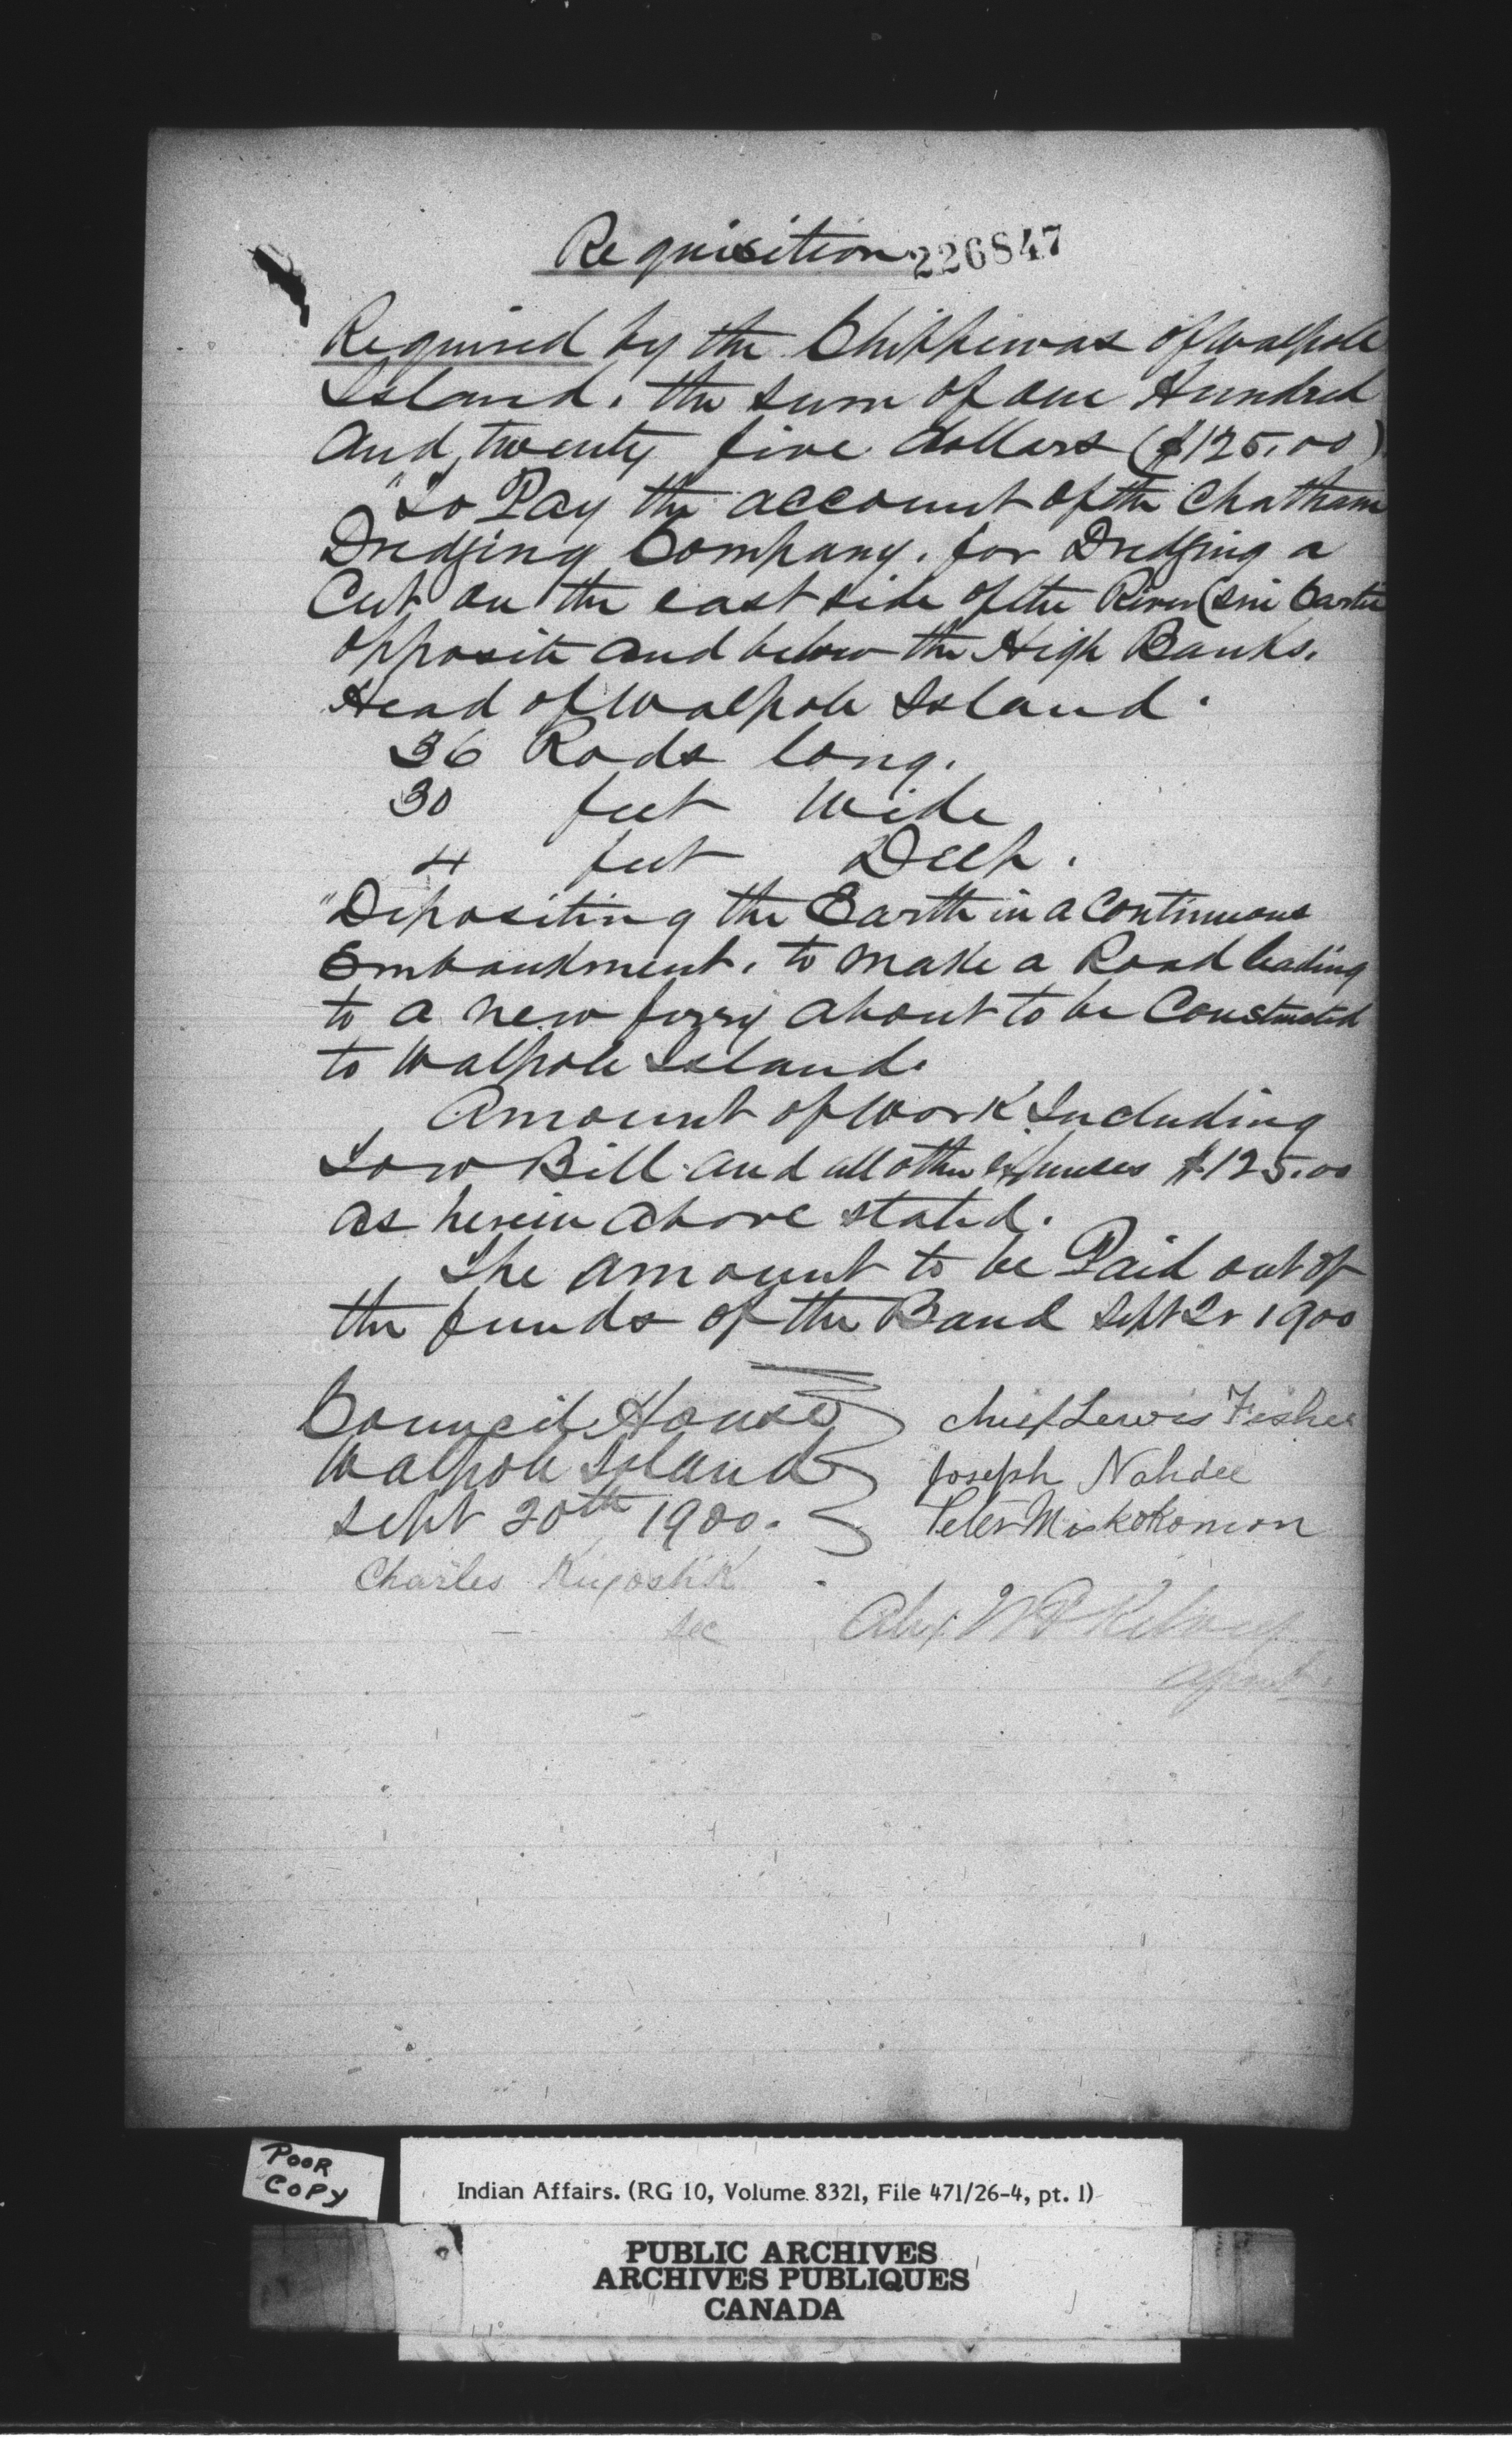 Requisition 226847
Required by the Chippewas of Walpole
Island. the sum of one Hundred
and twenty five dollars ($125.00)
"To Pay the account of the Chatham
Dredging Company. for Dredging a
Cut on the east side of the River
opposite and below the High Banks.
Head of Walpole Island.
36 Rods long.
30 feet Wide
4 feet Deep.
"Depositing the Earth in a Continuous
Embankment. to make a Road leading
to a new ferry about to be Constructed
to Walpole Island.
Amount of Work Including
Tow Bill and all other expenses $125.00
as herein above stated.
The amount to be Paid out of
the funds of the Band Sept 1900
Council House
Walpole Island
Sept 20th 1900.
Chief Lewis Fisher
Joseph Nahdee
Peter Miskokomon
Charles
Sec
Alex
Agent
POOR
COPY
Indian Affairs. (RG 10, Volume 8321, File 471/26-4, pt. 1)
PUBLIC ARCHIVES
ARCHIVES PUBLIQUES
CANADA